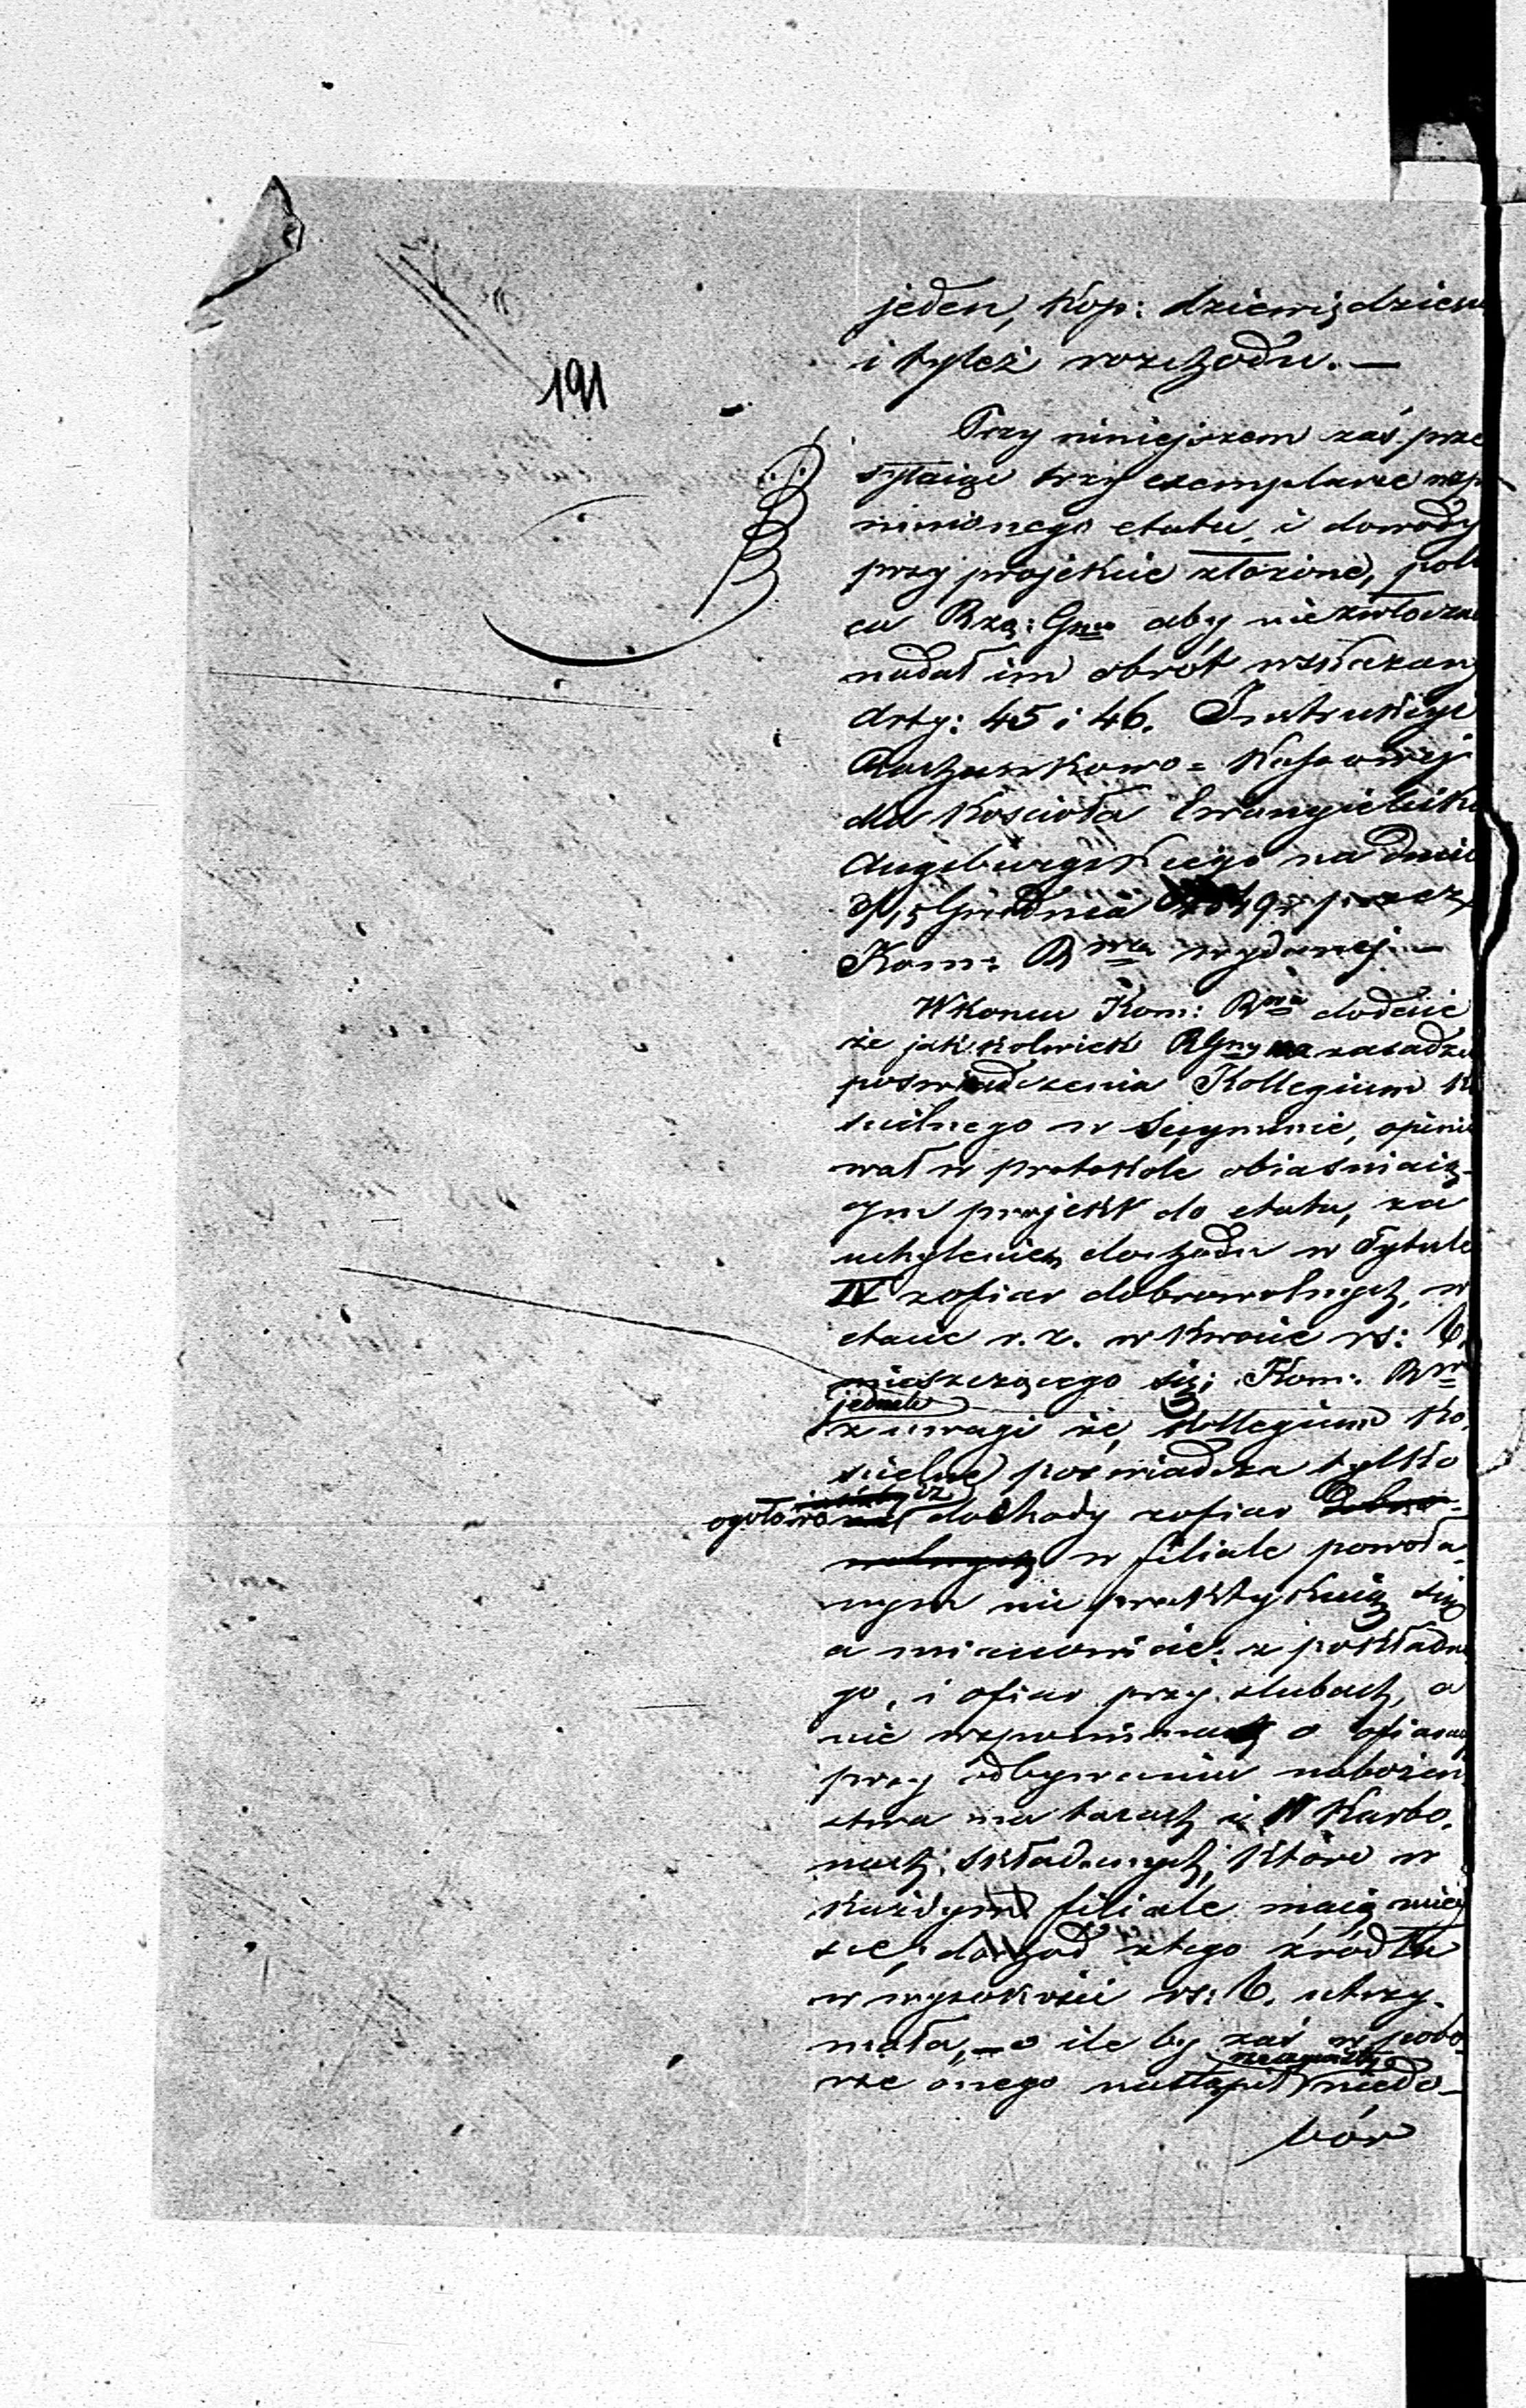 191
jeden, Kop: dziewiędzies
i tyleż rozchodu. —
Przy niniejszem zaś prze
syłaiąc trzy exemplarze wspo
mnionego etatu, i dowody
przy projekcie złożone, pole
ca Rzą: Gnu aby niezwłoczn
nadał im obrót wskazany
Arty: 45 i 46. Instrukcyi
Rachunkowo = Kassowej
dla Kościoła Ewangielick
Augsburgskiego na dniu
3/15 Grudnia 1849 r przez
Kom: Rwa wydanej —
W końcu Kom: Rwa dodaie
że jakkolwiek RGny na zasadzie
poswiadczenia Kollegium Ko
scielnego w Secyminie, opinio
wał w protokole obiaśniaią-
cym projekt do etatu, za
uchyleniem dochodu w Tytule
IV z ofiar dobrowolnych, w
etacie r. z. w kwocie rs: 6.
mieszczącego się; Kom: Rwa
jednak
z uwagi że, Kollegium Ko,
scielne poswiadcza tylko
iż
ogółowo dochody z ofiar Dobro-
wolnych w filiale powoła-
nym nie praktykuią się
a mianowicie: z pokładne
go, i ofiar przy slubach, a
nie wspominaiąc o ofiarach
przy odbywaniu nabożeń
stwa na tacach i w Karbo,
nach składanych, które w
każdym filiale maią miey
sce, dochod z tego źródła
w wysokości rs: 6. utrzy-
mała, — o ile by zaś w pobo-
rze onego nastąpił niedo-
bór